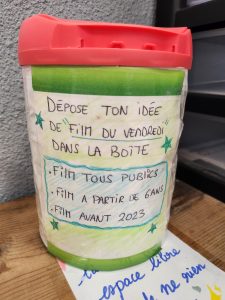 DÉPOSE TON IDÉE
DE "FILM DU VENDREDI"
DANS LA BOÎTE
. FILM TOUS PUBLICS
. FILM A PARTIR DE 6 ANS
. FILM AVANT 2023
espace libre
de ne rien